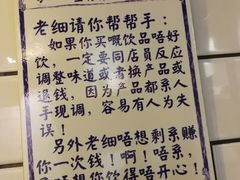 老细请你帮帮手：
如果你买嘅饮品唔好
饮，一定要同店员反应
调整味道或者换产品或
退钱，因为产品都系人
手现调，容易有人为失
误！
另外老细唔想剩系赚
你一次钱！啊！唔系，
你饮得唔开心！